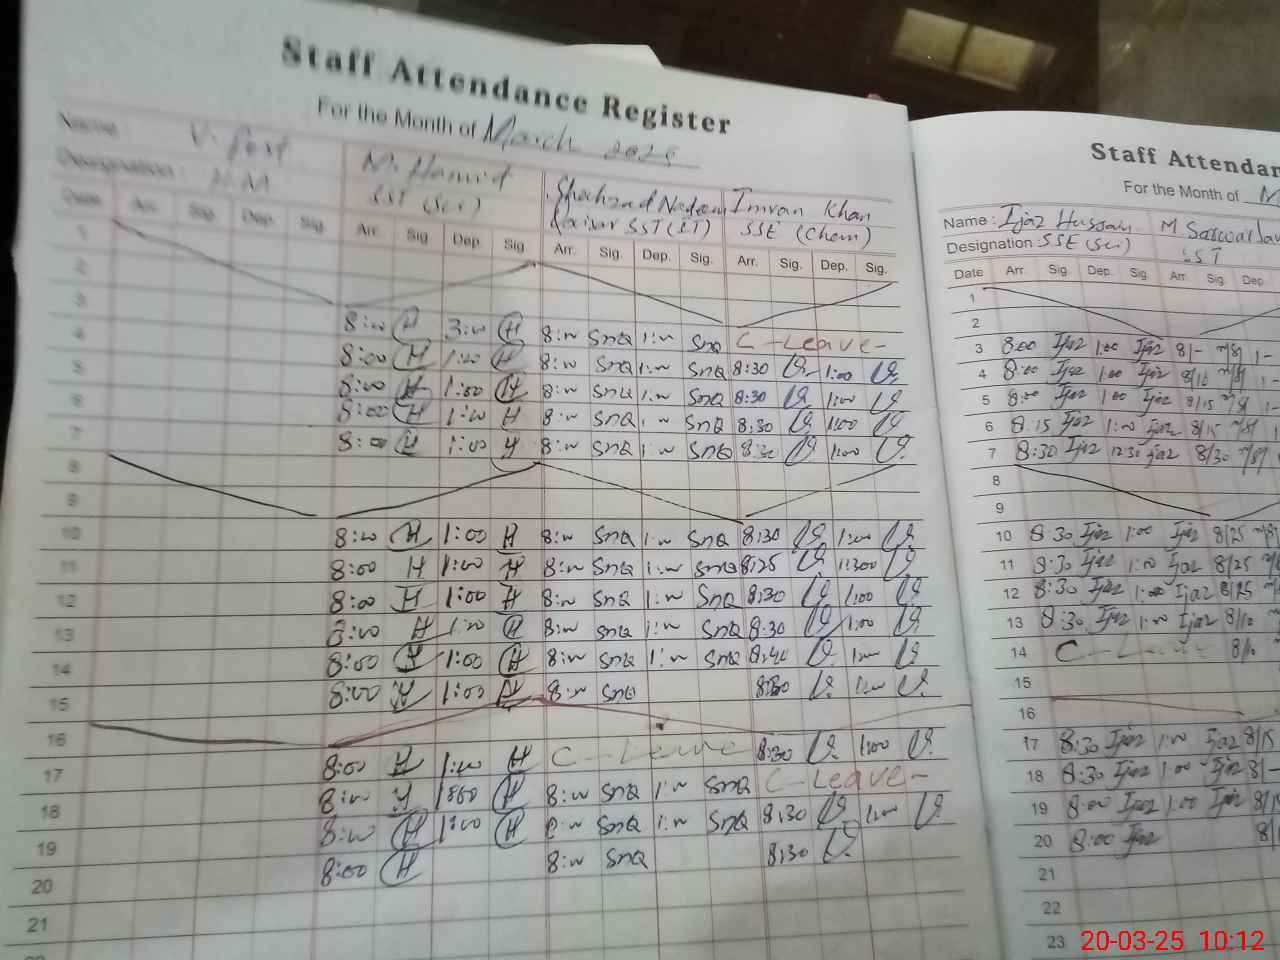 Staff Attendance Register
For the Month of March 2025
Name : V. Post M. Hamid Shahzad Nadeem Imran Khan
Designation : H.M SST (Sci) SST (IT) SSE (Chem)
Date Arr. Sig. Dep. Sig. Arr. Sig. Dep. Sig. Arr. Sig. Dep. Sig. Arr. Sig. Dep. Sig.
1
2
3 8:00 H 3:00 H 8:00 SnQ 1:00 SnQ C-Leave-
4 8:00 H 1:00 H 8:00 SnQ 1:00 SnQ 8:30 1:00
5 8:00 H 1:00 H 8:00 SnQ 1:00 SnQ 8:30 1:00
6 8:00 H 1:00 H 8:00 SnQ 1:00 SnQ 8:30 1:00
7 8:00 H 1:00 H 8:00 SnQ 1:00 SnQ 8:30 1:00
8
9
10 8:00 H 1:00 H 8:00 SnQ 1:00 SnQ 8:30 1:00
11 8:00 H 1:00 H 8:00 SnQ 1:00 SnQ 8:25 1:00
12 8:00 H 1:00 H 8:00 SnQ 1:00 SnQ 8:30 1:00
13 8:00 H 1:00 H 8:00 SnQ 1:00 SnQ 8:30 1:00
14 8:00 H 1:00 H 8:00 SnQ 1:00 SnQ 8:40 1:00
15 8:00 H 1:00 H 8:00 SnQ 8:30 1:00
16
17 8:00 H 1:00 H C-Leave 8:30 1:00
18 8:00 H 1:00 H 8:00 SnQ 1:00 SnQ C-Leave-
19 8:00 H 1:00 H 8:00 SnQ 1:00 SnQ 8:30 1:00
20 8:00 H 8:00 SnQ 8:30
21
Staff Attendan
For the Month of M
Name : Ijaz Hussain M. Sarwar
Designation SSE (Sci) SST
Date Arr. Sig. Dep. Sig. Arr. Sig. Dep
1
2
3 8:00 Ijaz 1:00 Ijaz 8/- 1-
4 8:00 Ijaz 1:00 Ijaz 8/10 1-
5 8:00 Ijaz 1:00 Ijaz 8/15 1-
6 8:15 Ijaz 1:00 Ijaz 8/15
7 8:30 Ijaz 12:30 Ijaz 8/30
8
9
10 8:30 Ijaz 1:00 Ijaz 8/25
11 8:30 Ijaz 1:00 Ijaz 8/25
12 8:30 Ijaz 1:00 Ijaz 8/25
13 8:30 Ijaz 1:00 Ijaz 8/10
14 C-Leave 8/10
15
16
17 8:30 Ijaz 1:00 Ijaz 8/15
18 8:30 Ijaz 1:00 Ijaz 8/-
19 8:00 Ijaz 1:00 Ijaz 8/15
20 8:00 Ijaz 8/
21
22
23
20-03-25 10:12